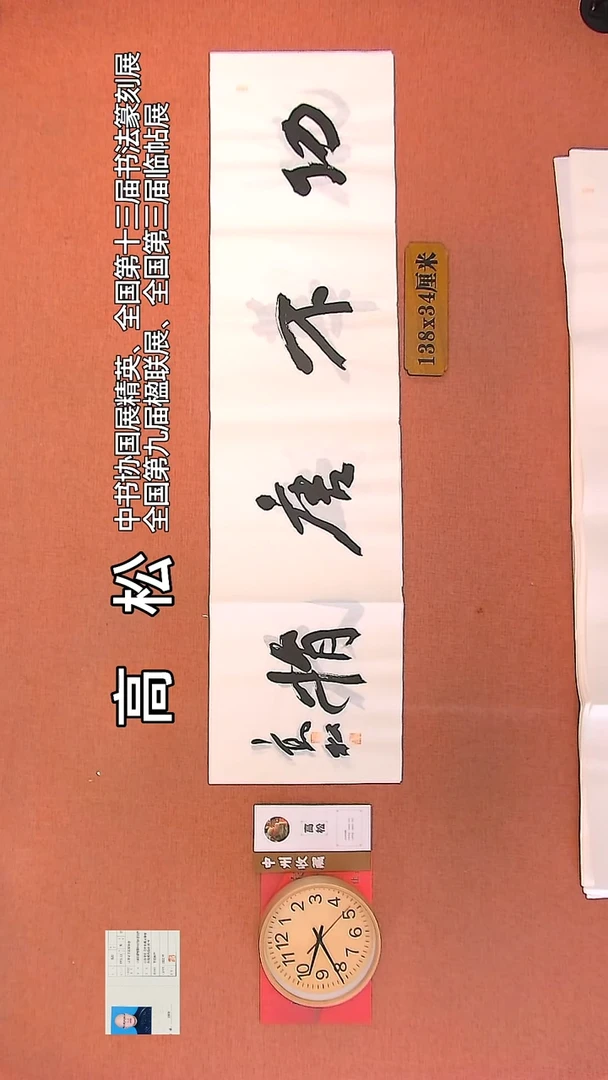 高 松
中书协国展精英、全国第十三届书法篆刻展
全国第九届楹联展、全国第三届临帖展
功不唐捐
高松
138x34厘米
高松
中州收藏
12 1 2 3 4 5 6 7 8 9 10 11